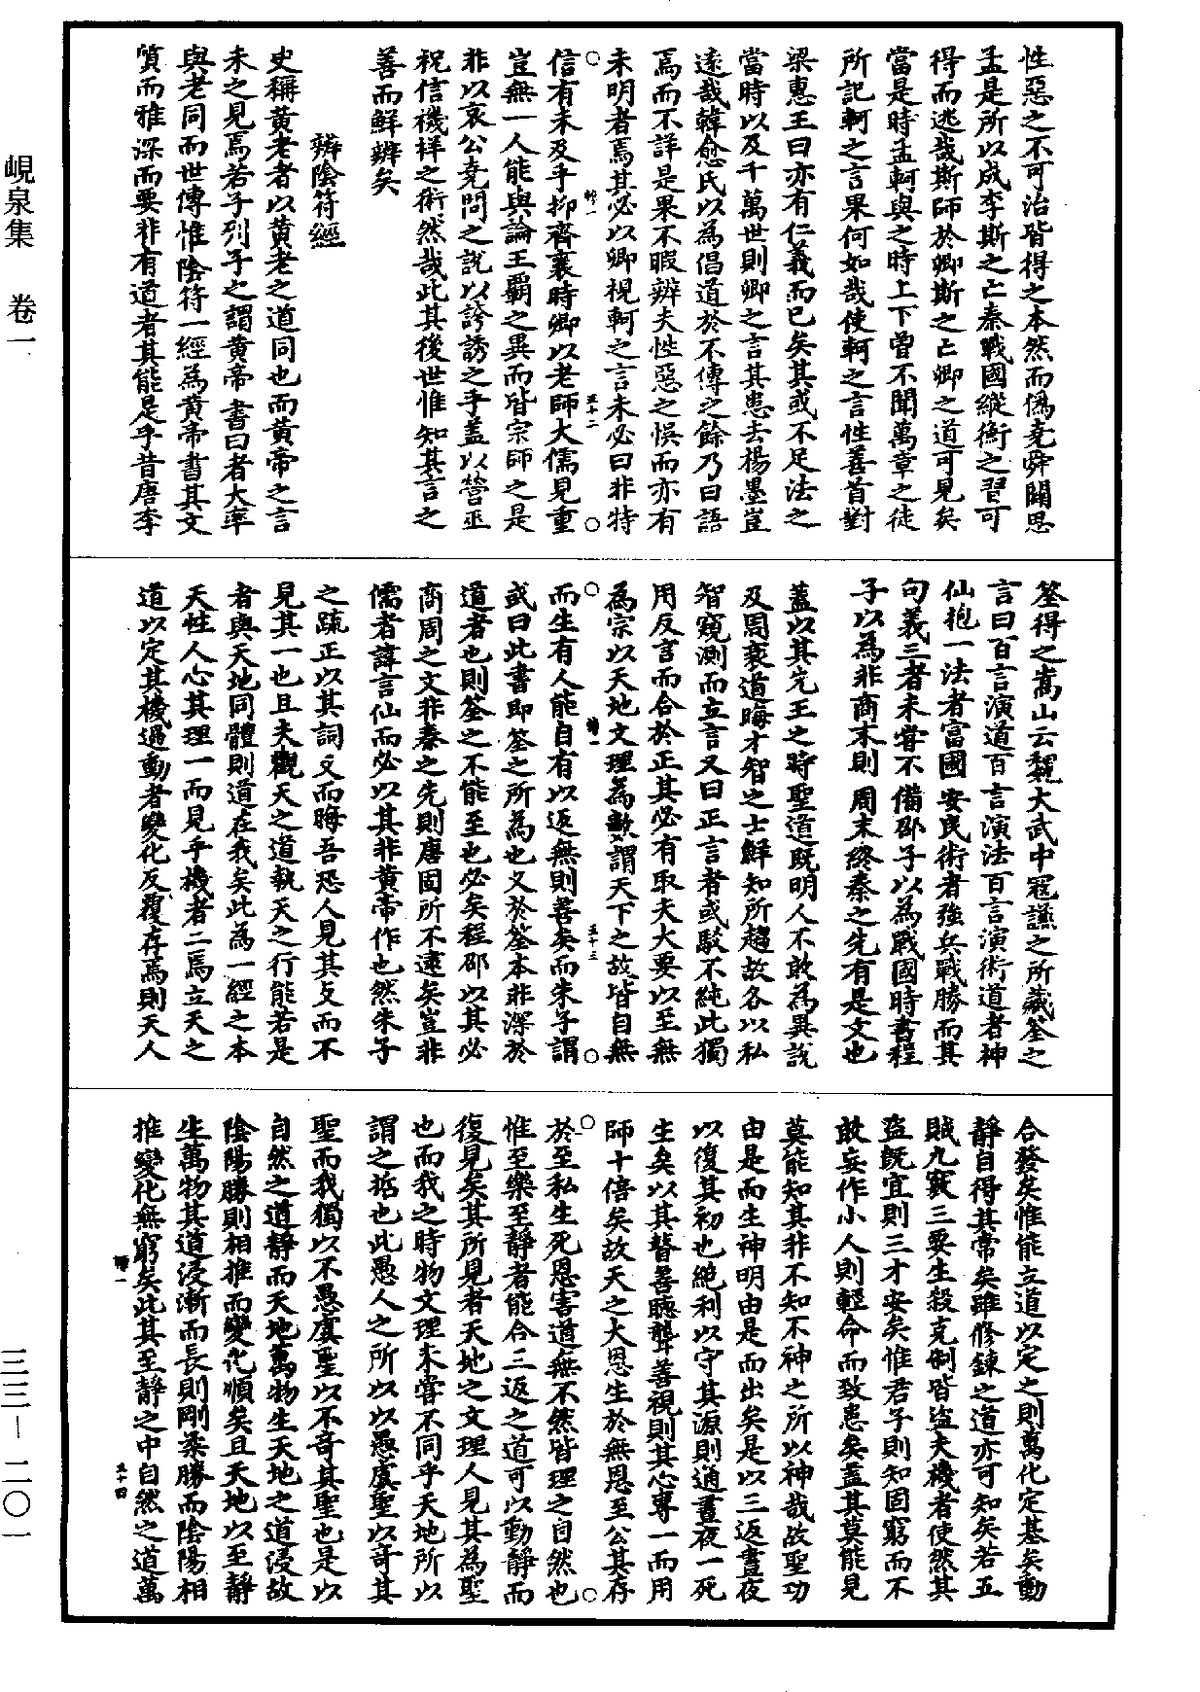 性惡之不可治皆得之本然而僞堯舜闢思
孟是所以成李斯之亡秦戰國縱衡之習可
得而逃哉斯師於卿斯之亡卿之道可見矣
當是時孟軻與之時上下曾不聞萬章之徒
所記軻之言果何如哉使軻之言性善首對
梁惠王曰亦有仁義而已矣其或不足法之
當時以及千萬世則卿之言其患去楊墨豈
遠哉韓愈氏以為倡道於不傳之餘乃曰語
焉而不詳是果不暇辨夫性惡之悞而亦有
未明者焉其必以卿視軻之言未必曰非特
信有未及乎抑齊襄時卿以老師大儒見重
豈無一人能與論王霸之異而皆宗師之是
非以哀公堯問之說以誇誘之乎盖以營巫
祝信禨祥之術然哉此其後世惟知其言之
善而鮮辨矣
辨陰符經
史稱黃老者以黃老之道同也而黃帝之言
未之見焉若子列子之謂黃帝書曰者大率
與老同而世傳惟陰符一經為黃帝書其文
質而雅深而要非有道者其能是乎昔唐李
筌得之嵩山云魏大武中冦謙之所藏筌之
言曰百言演道百言演法百言演術道者神
仙抱一法者富國安民術者強兵戰勝而其
句義三者未嘗不備邵子以為戰國時書程
子以為非商末則周末終秦之先有是文也
蓋以其先王之時聖道旣明人不敢為異說
及周衰道晦才智之士鮮知所趨故各以私
智窺測而立言又曰正言者或駁不純此獨
用反言而合於正其必有取夫大要以至無
為宗以天地文理為數謂天下之故皆自無
而生有人能自有以返無則善矣而朱子謂
或曰此書即筌之所為也又於筌本非深於
道者也則筌之不能至也必矣程邵以其必
商周之文非秦之先則唐固所不逮矣豈非
儒者諱言仙而必以其非黃帝作也然朱子
之疏正以其詞支而晦吾恐人見其攴而不
見其一也且夫觀天之道執天之行能若是
者與天地同體則道在我矣此為一經之本
天性人心其理一而見乎機者二焉立天之
道以定其機過動者變化反覆存焉則天人
合發矣惟能立道以定之則萬化定基矣動
靜自得其常矣雖修鍊之道亦可知矣若五
賊九竅三要生殺克制皆盜夫機者使然其
盜旣宜則三才安矣惟君子則知固窮而不
敢妄作小人則輕命而致患矣葢其莫能見
莫能知其非不知不神之所以神哉故聖功
由是而生神明由是而出矣是以三返晝夜
以復其初也絶利以守其源則通晝夜一死
生矣以其瞽善聽聾善視則其心專一而用
師十倍矣故天之大恩生於無恩至公其存
於至私生死恩害道無不然皆理之自然也
惟至樂至靜者能合二返之道可以動靜而
復見矣其所見者天地之文理人見其為聖
也而我之時物文理未嘗不同乎天地所以
謂之哲也此愚人之所以以愚虞聖以奇其
聖而我獨以不愚虞聖以不奇其聖也是以
自然之道靜而天地萬物生天地之道浸故
陰陽勝則相推而變化順矣且天地以至靜
生萬物其道浸漸而長則剛柔勝而陰陽相
推變化無窮矣此其至靜之中自然之道萬
五十二
五十三
五十四
峴泉集 卷一
三三—二〇一